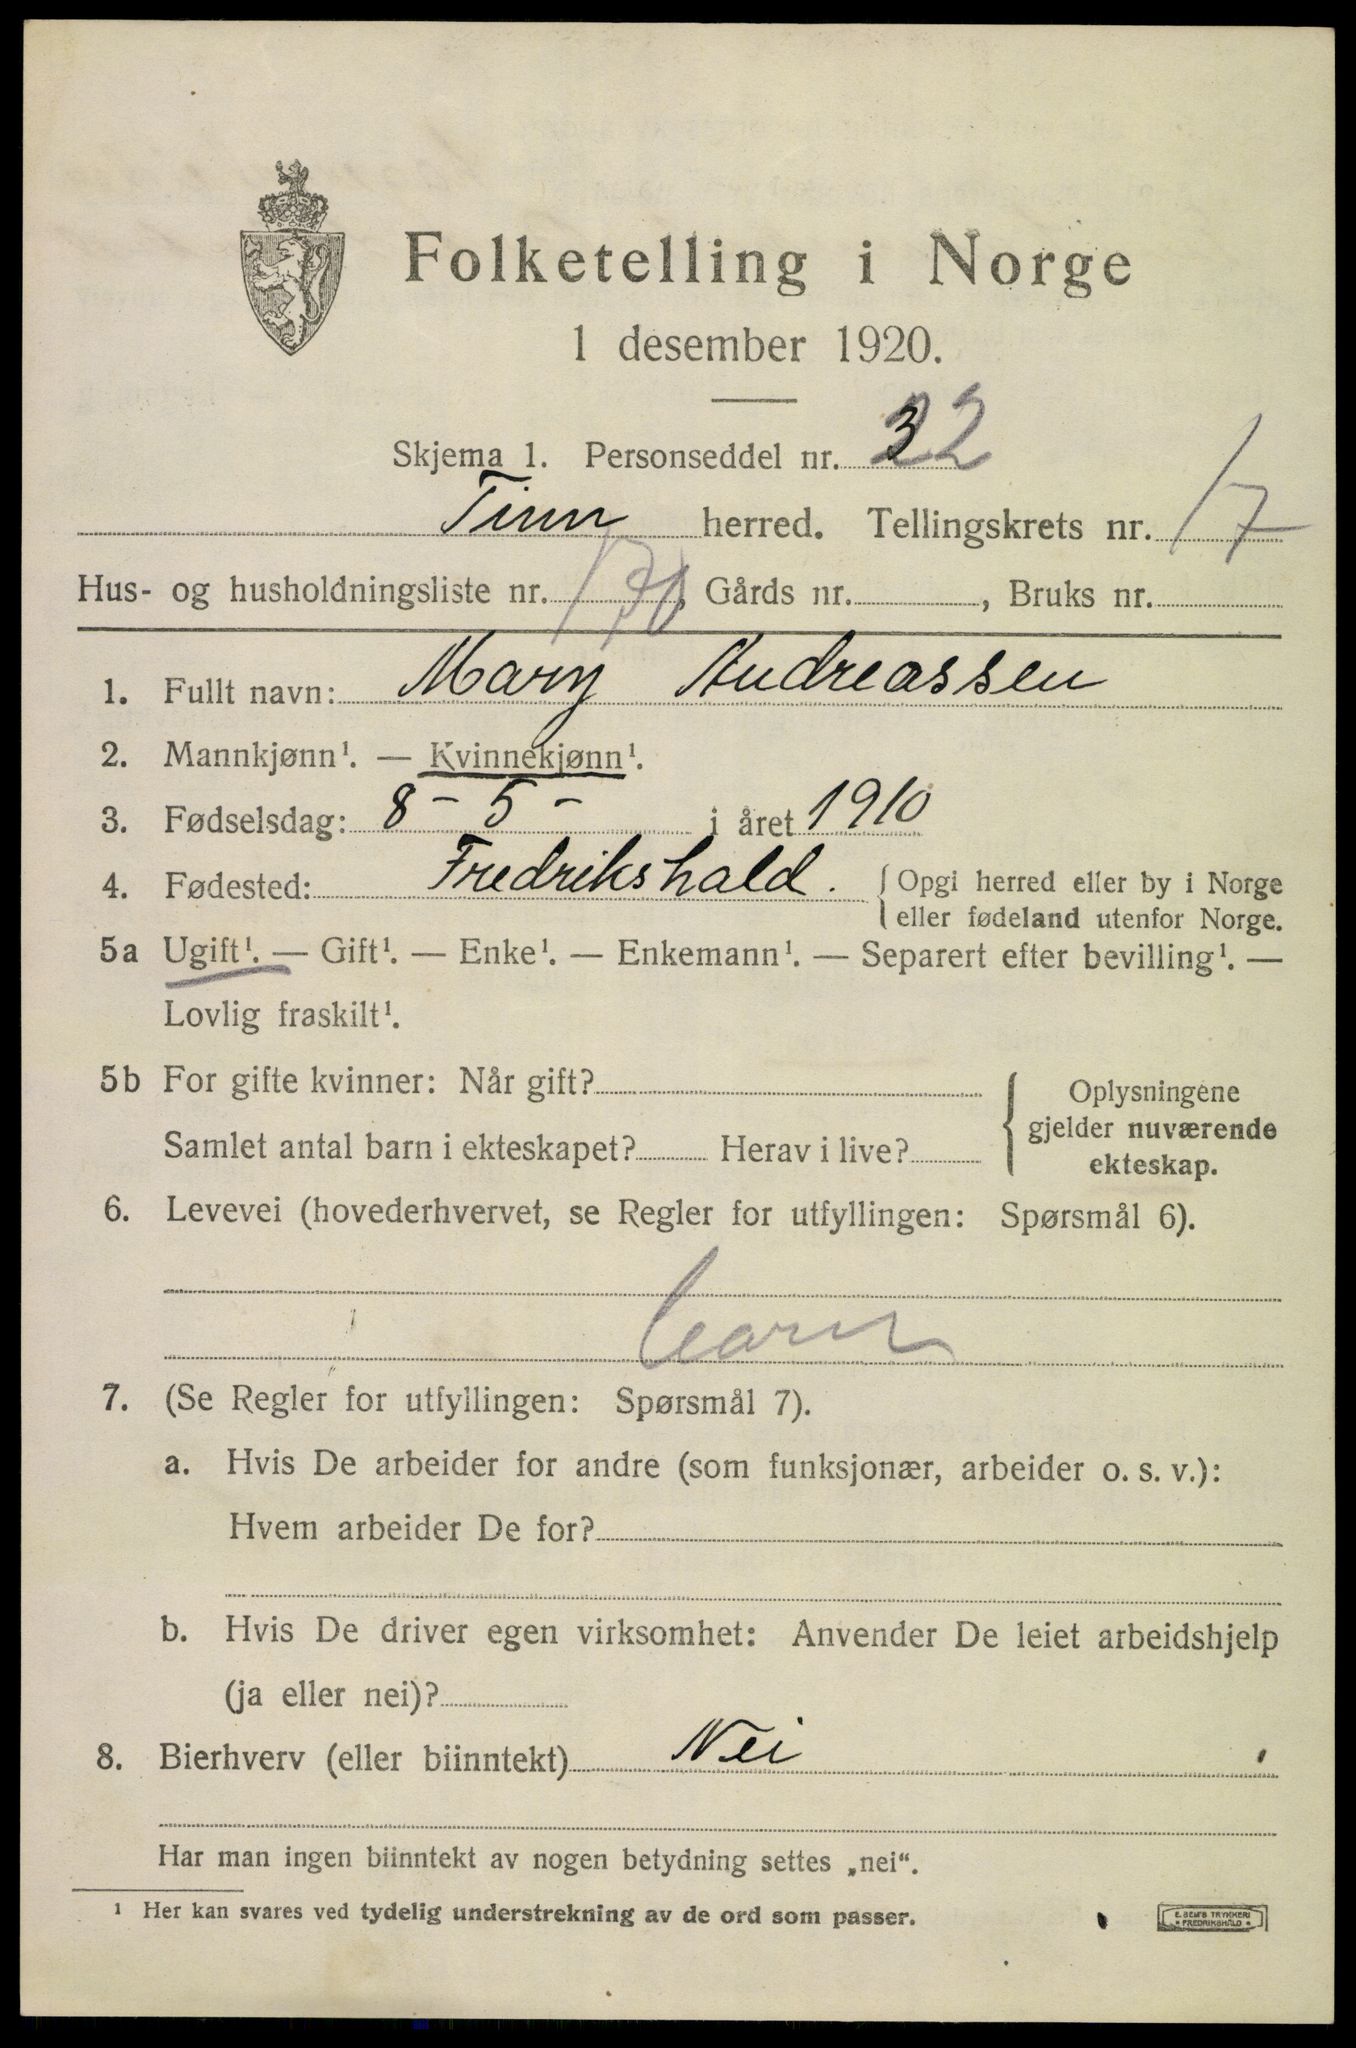 Folketelling i Norge
1 desember 1920.
Skjema 1. Personseddel nr. 32
Tinn herred. Tellingskrets nr. 17
Hus- og husholdningsliste nr. , Gårds nr. , Bruks nr.
1. Fullt navn: Mary Andreassen
2. Mannkjønn¹. — Kvinnekjønn¹.
3. Fødselsdag: 8 - 5 - i året 1910
4. Fødested: Fredrikshald. { Opgi herred eller by i Norge
eller fødeland utenfor Norge.
5a Ugift¹. — Gift¹. — Enke¹. — Enkemann¹. — Separert efter bevilling¹. —
Lovlig fraskilt¹.
5b For gifte kvinner: Når gift? { Oplysningene
gjelder nuværende
Samlet antal barn i ekteskapet? Herav i live? ekteskap.
6. Levevei (hovederhvervet, se Regler for utfyllingen: Spørsmål 6).
barn
7. (Se Regler for utfyllingen: Spørsmål 7).
a. Hvis De arbeider for andre (som funksjonær, arbeider o. s. v.):
Hvem arbeider De for?
b. Hvis De driver egen virksomhet: Anvender De leiet arbeidshjelp
(ja eller nei)?
8. Bierhverv (eller biinntekt) Nei
Har man ingen biinntekt av nogen betydning settes „nei“.
¹ Her kan svares ved tydelig understrekning av de ord som passer.
E. SEM'S TRYKKERI
• FREDRIKSHALD •